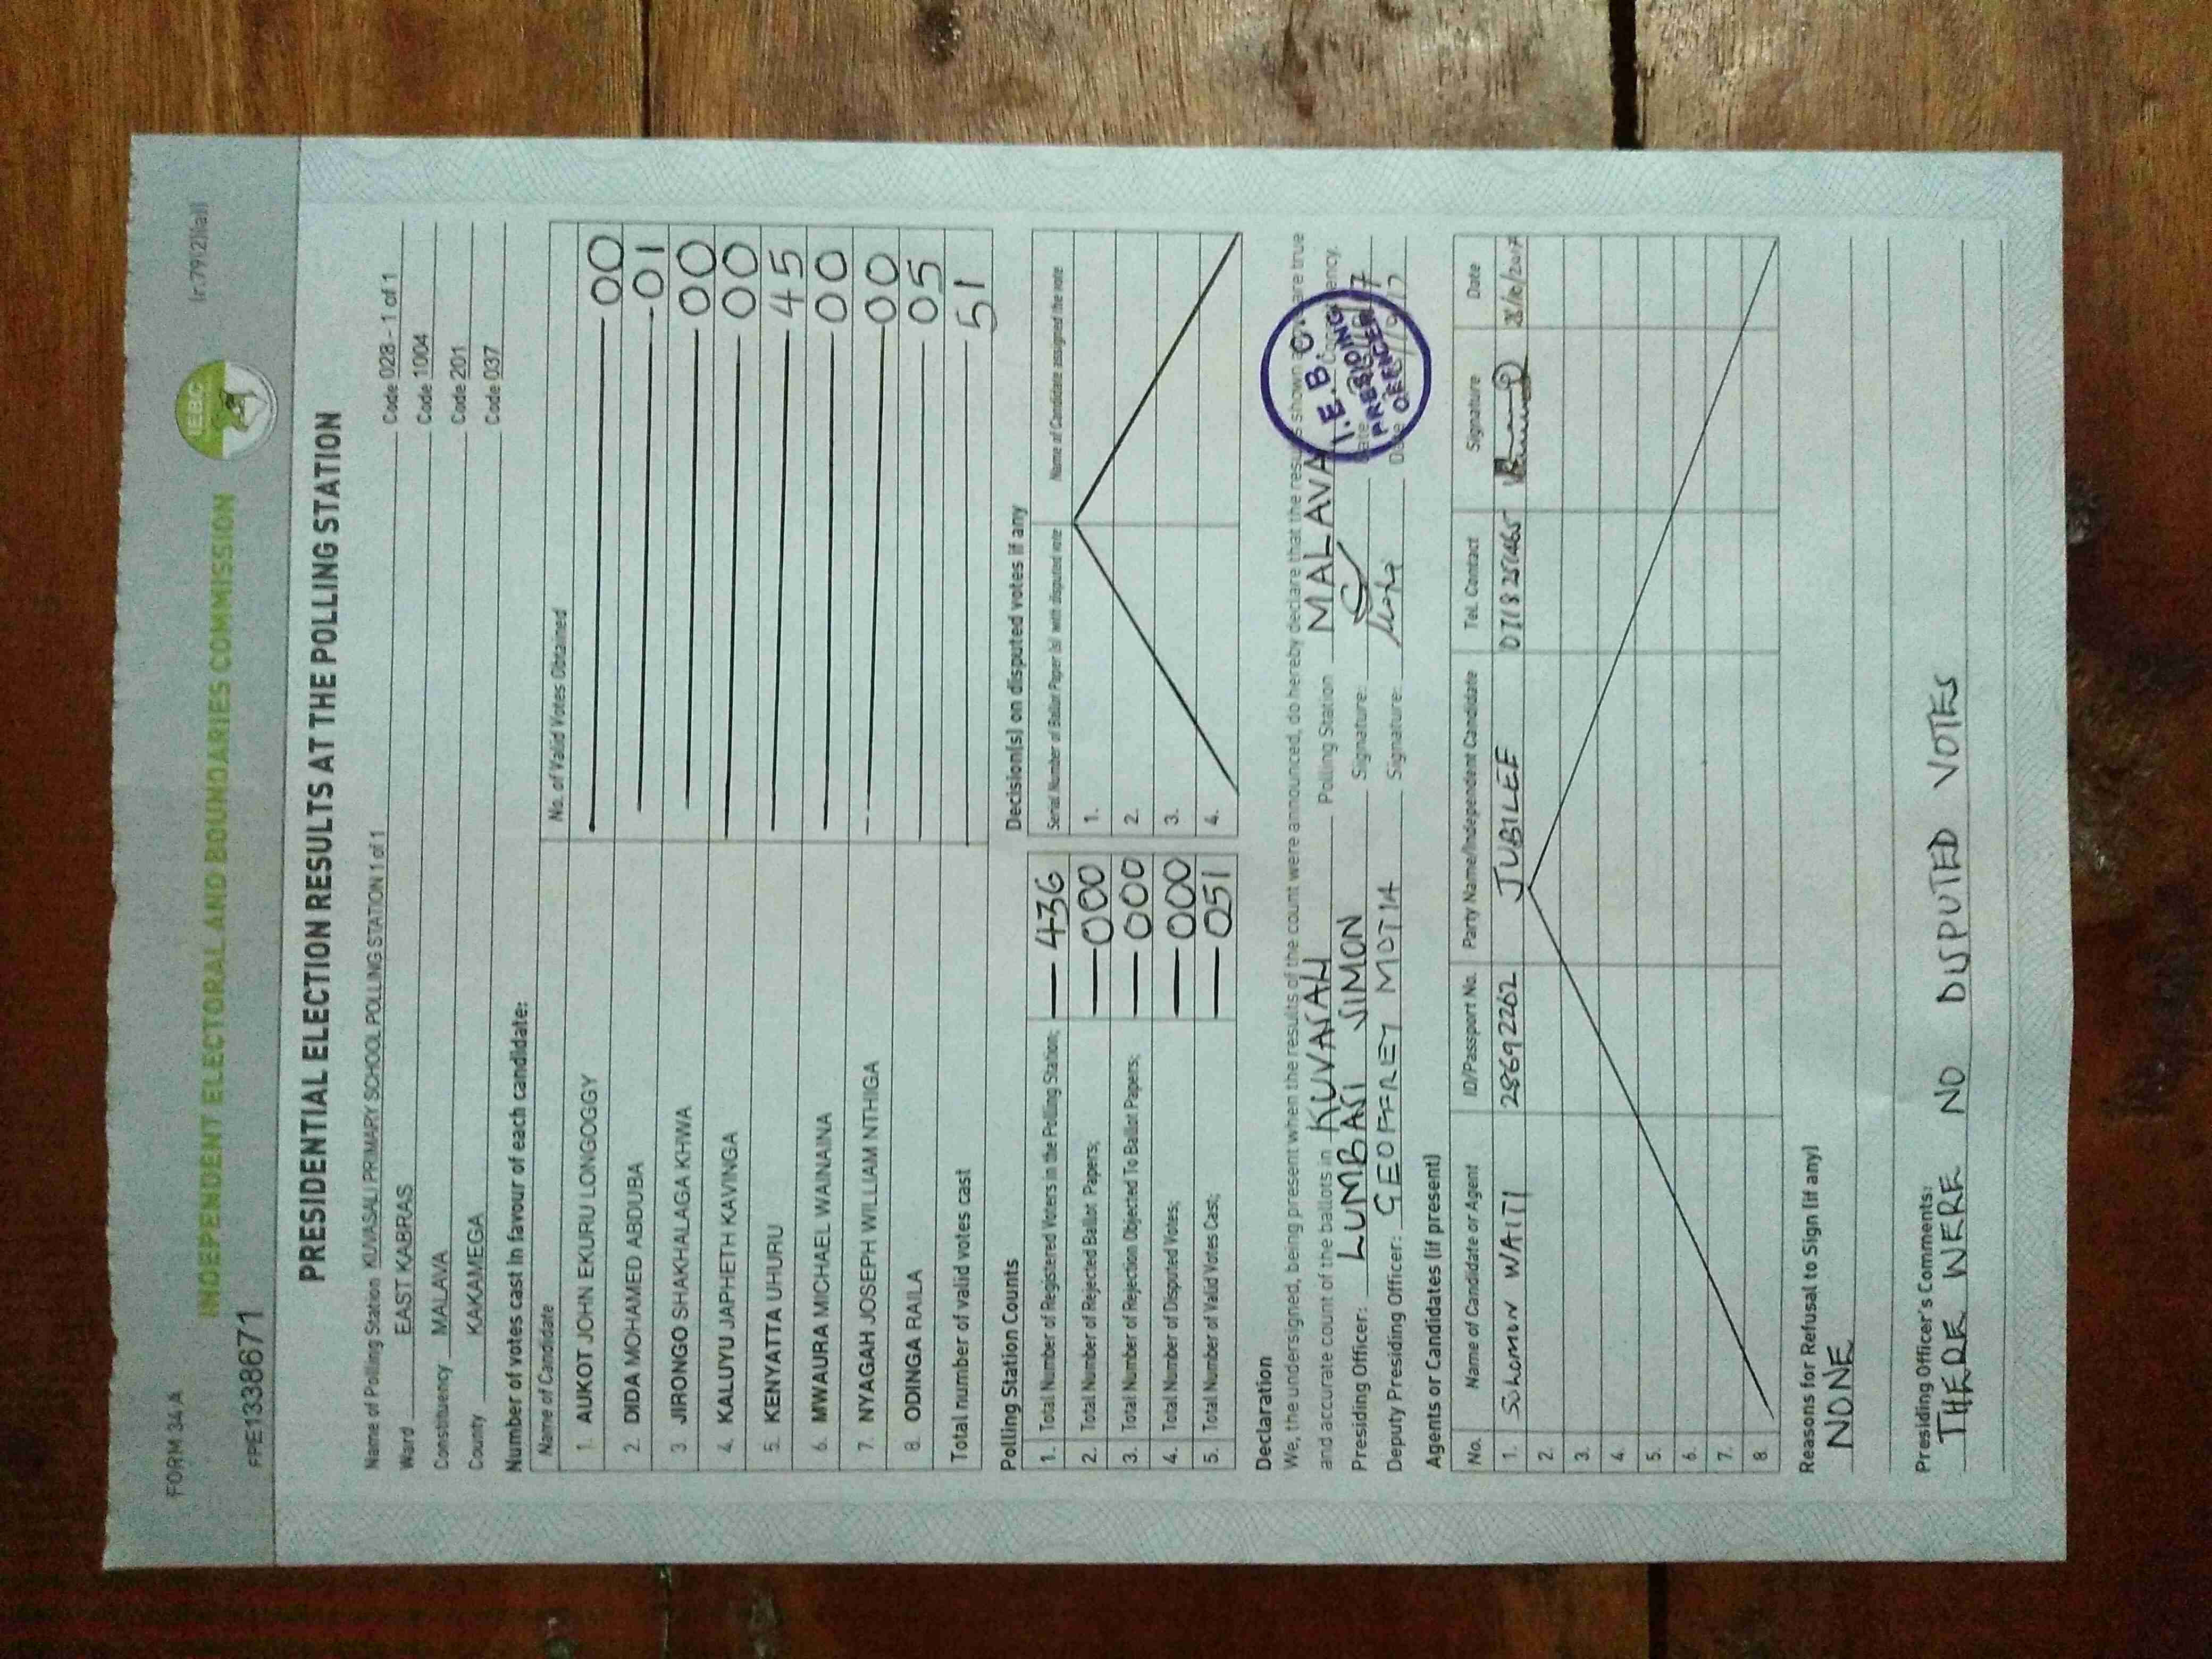 FORM 34 A
(r.79(2)(a))
INDEPENDENT ELECTORAL AND BOUNDARIES COMMISSION
IEBC
FPE1338671
PRESIDENTIAL ELECTION RESULTS AT THE POLLING STATION
Name of Polling Station KUVASALI PRIMARY SCHOOL POLLING STATION 1 of 1 Code 028 - 1 of 1
Ward EAST KABRAS Code 1004
Constituency MALAVA Code 201
County KAKAMEGA Code 037
Number of votes cast in favour of each candidate:
Name of Candidate No. of Valid Votes Obtained
1. AUKOT JOHN EKURU LONGOGGY 00
2. DIDA MOHAMED ABDUBA 01
3. JIRONGO SHAKHALAGA KHWA 00
4. KALUYU JAPHETH KAVINGA 00
5. KENYATTA UHURU 45
6. MWAURA MICHAEL WAINAINA 00
7. NYAGAH JOSEPH WILLIAM NTHIGA 00
8. ODINGA RAILA 05
Total number of valid votes cast 51
Polling Station Counts
1. Total Number of Registered Voters in the Polling Station; 436
2. Total Number of Rejected Ballot Papers; 000
3. Total Number of Rejection Objected To Ballot Papers; 000
4. Total Number of Disputed Votes; 000
5. Total Number of Valid Votes Cast; 051
Decision(s) on disputed votes if any
Serial Number of Ballot Paper (s) with disputed vote Name of Candidate assigned the vote
1.
2.
3.
4.
Declaration
We, the undersigned, being present when the results of the count were announced, do hereby declare that the results shown are true
and accurate count of the ballots in KUVASALI Polling Station MALAVA
Presiding Officer: LUMBASI SIMON Signature:
Deputy Presiding Officer: GEOFFREY Signature:
I.E.B.C.
PRESIDING
OFFICER
Agents or Candidates (if present)
No. Name of Candidate or Agent ID/Passport No. Party Name/Independent Candidate Tel. Contact Signature Date
1. WAITI 28692262 JUBILEE
2.
3.
4.
5.
6.
7.
8.
Reasons for Refusal to Sign (if any)
NONE
Presiding Officer's Comments:
THERE WERE NO DISPUTED VOTES